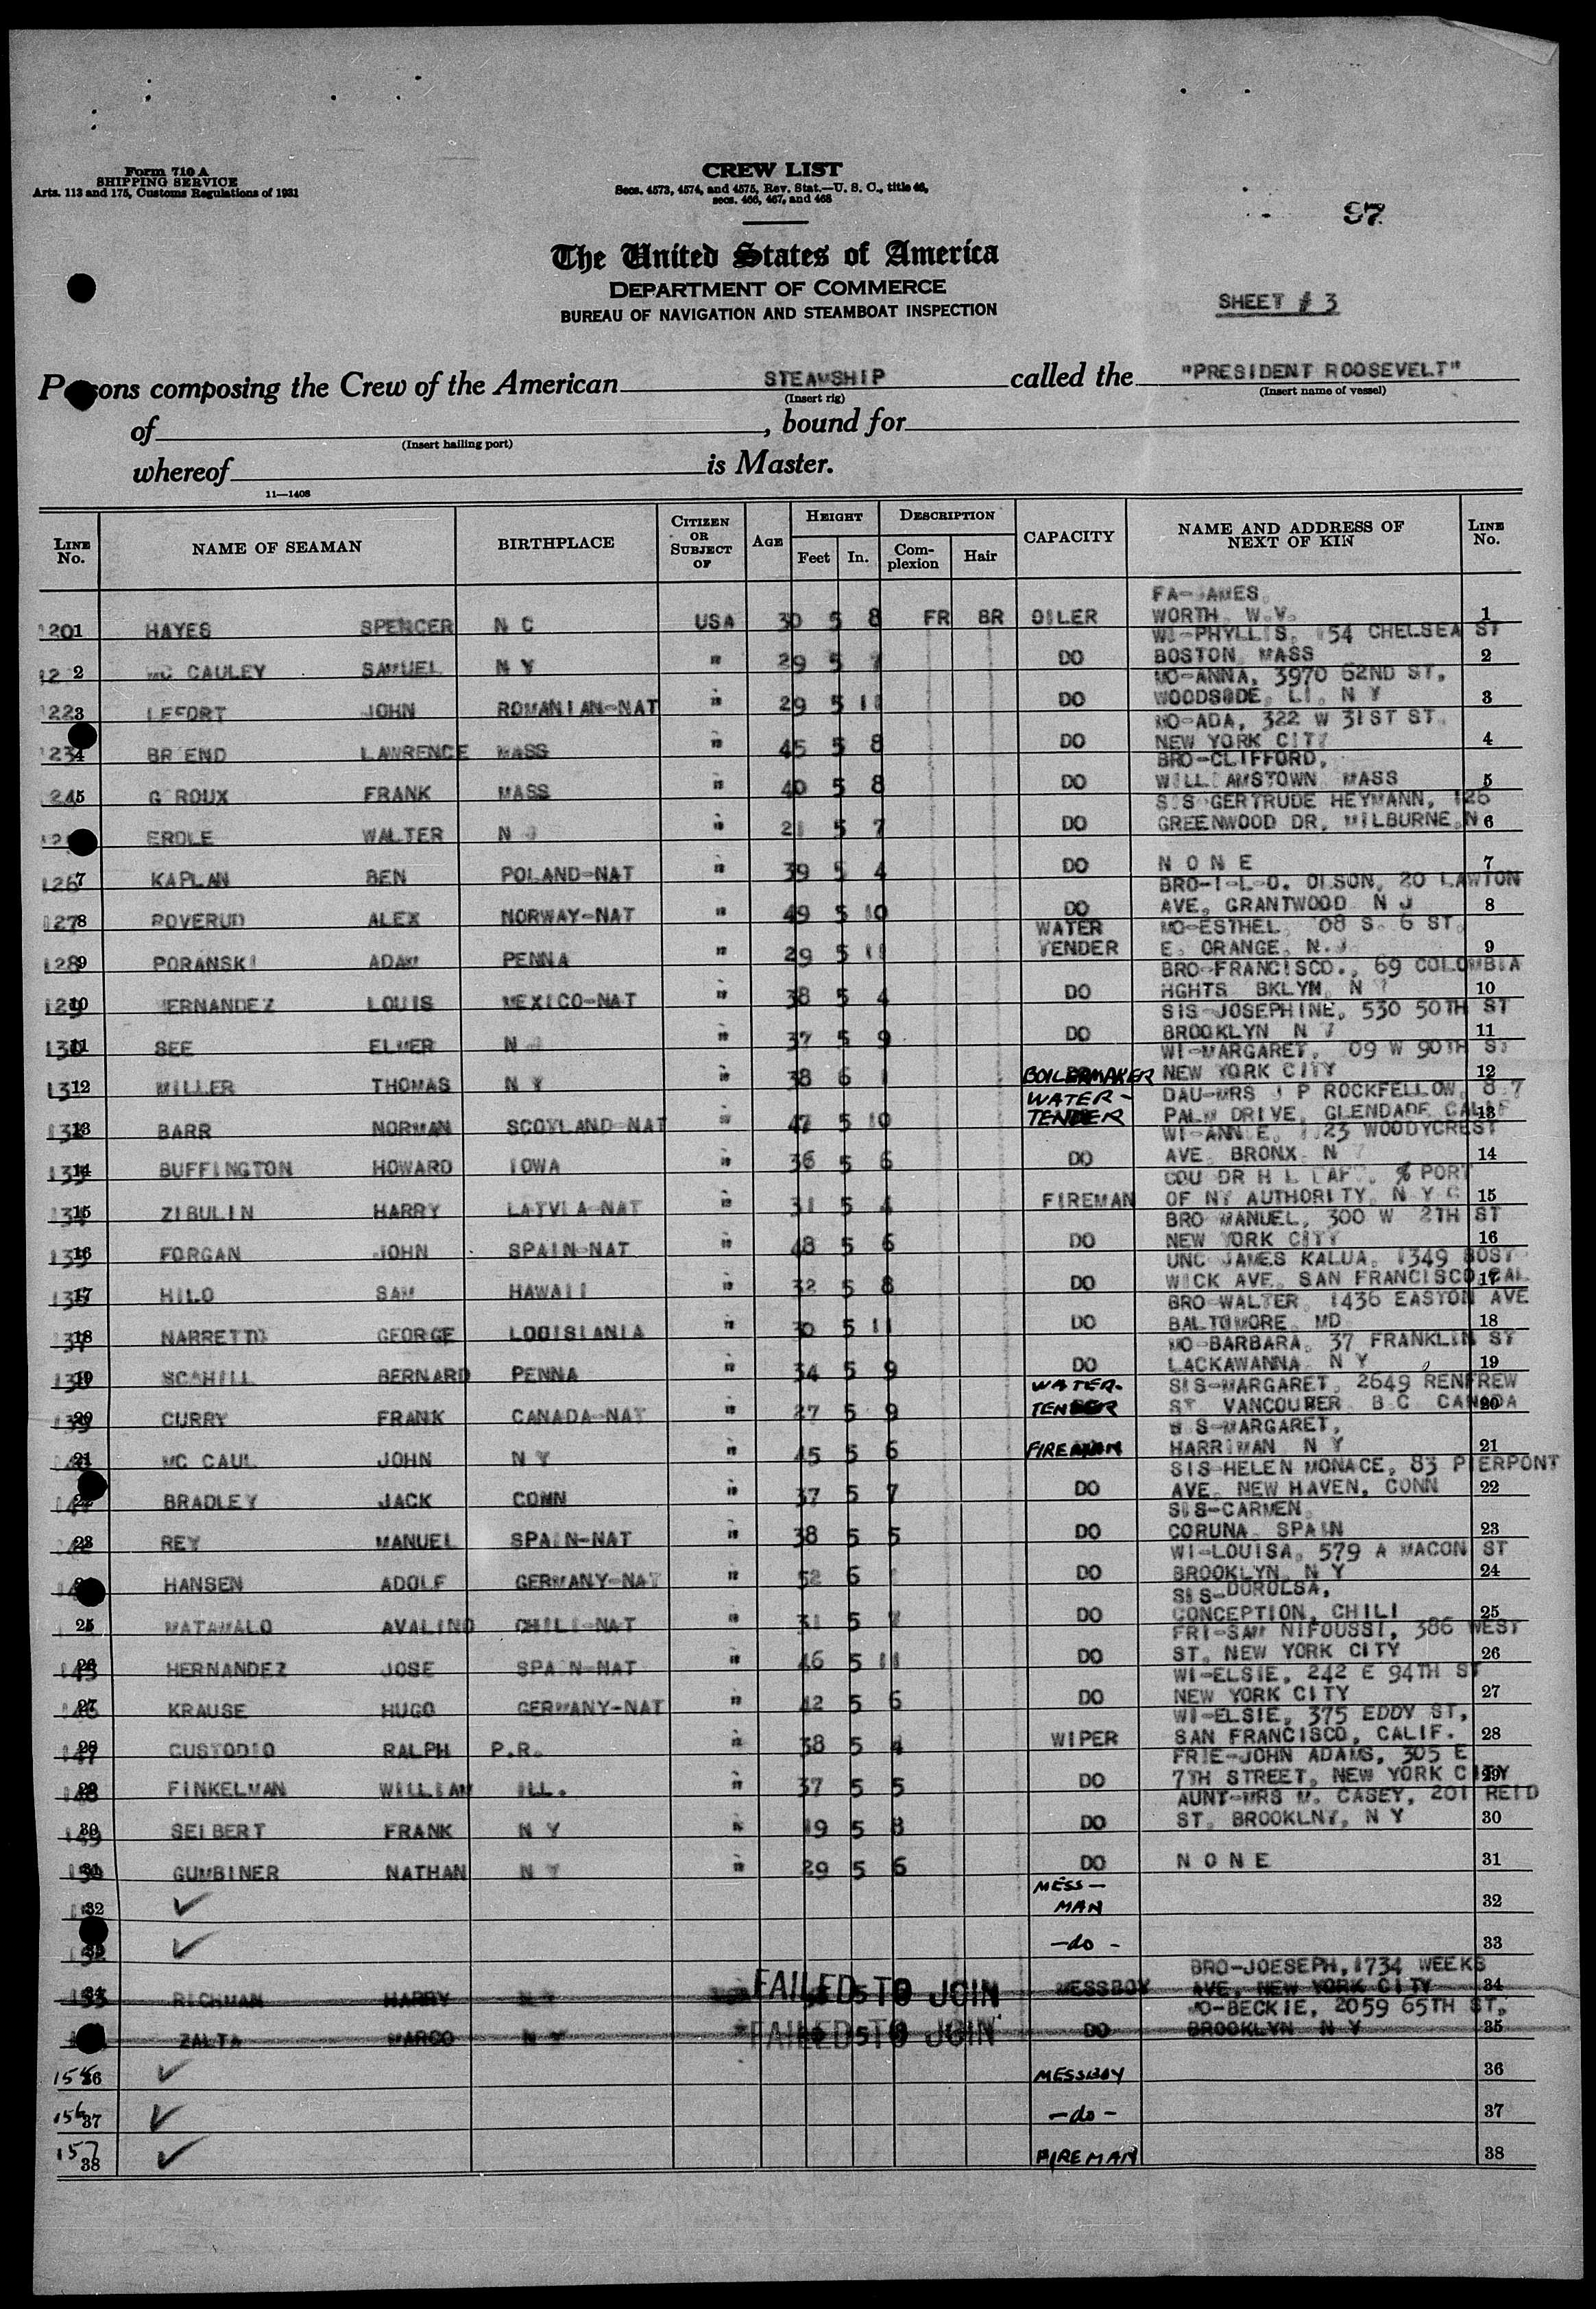 Form 710 A
SHIPPING SERVICE
Arts. 113 and 175, Customs Regulations of 1931
CREW LIST
Secs. 4573, 4574, and 4575, Rev. Stat.—U. S. C., title 46,
secs. 466, 467, and 468
97
The United States of America
DEPARTMENT OF COMMERCE
BUREAU OF NAVIGATION AND STEAMBOAT INSPECTION
SHEET # 3
Persons composing the Crew of the American STEAMSHIP called the "PRESIDENT ROOSEVELT"
(Insert rig) (Insert name of vessel)
of , bound for
(Insert hailing port)
whereof is Master.
11—1408
LINE No. NAME OF SEAMAN BIRTHPLACE CITIZEN OR SUBJECT OF AGE HEIGHT Feet In. DESCRIPTION Complexion Hair CAPACITY NAME AND ADDRESS OF NEXT OF KIN LINE No.
FA-JAMES,
1 HAYES SPENCER N C USA 30 5 8 FR BR OILER WORTH, W.V. 1
WI-PHYLLIS, 54 CHELSEA ST
2 MC CAULEY SAMUEL N Y " 29 5 7 DO BOSTON MASS 2
MO-ANNA, 3970 62ND ST,
3 LEFORT JOHN ROMANIAN-NAT " 29 5 11 DO WOODSODE, LI, N Y 3
MO-ADA, 322 W 31ST ST
4 BR END LAWRENCE MASS " 45 5 8 DO NEW YORK CITY 4
BRO-CLIFFORD,
5 G ROUX FRANK MASS " 40 5 8 DO WILLIAMSTOWN MASS 5
SIS GERTRUDE HEYMANN, 126
ERDLE WALTER N J " 21 5 7 DO GREENWOOD DR, MILBURNE, N 6
7 KAPLAN BEN POLAND-NAT " 39 5 4 DO N O N E 7
BRO-I-L-O. OLSON, 20 LAWTON
8 ROVERUD ALEX NORWAY-NAT " 49 5 10 DO AVE, GRANTWOOD N J 8
WATER MO-ESTHEL, 08 S. 6 ST.
9 PORANSKI ADAM PENNA " 29 5 11 TENDER E. ORANGE, N.J. 9
BRO-FRANCISCO., 69 COLOMBIA
10 HERNANDEZ LOUIS MEXICO-NAT " 38 5 4 DO HGHTS BKLYN, N Y 10
SIS-JOSEPHINE, 530 50TH ST
11 SEE ELMER N J " 37 5 9 DO BROOKLYN N Y 11
WI-MARGARET, 09 W 90TH ST
12 MILLER THOMAS N Y " 38 6 1 BOILERMAKER NEW YORK CITY 12
WATER- DAU-MRS J P ROCKFELLOW, 8 7
13 BARR NORMAN SCOTLAND-NAT " 47 5 10 TENDER PALM DRIVE, GLENDADE CALIF 13
WI-ANNIE, 1123 WOODYCREST
14 BUFFINGTON HOWARD IOWA " 36 5 6 DO AVE, BRONX, N Y 14
COU DR H L % PORT
15 ZIBULIN HARRY LATVIA-NAT " 31 5 4 FIREMAN OF NY AUTHORITY, N Y C 15
BRO MANUEL, 300 W 2TH ST
16 FORGAN JOHN SPAIN-NAT " 48 5 6 DO NEW YORK CITY 16
UNC JAMES KALUA, 1349 BOST
17 HILO SAM HAWAII " 32 5 8 DO WICK AVE, SAN FRANCISCO, CAL 17
BRO-WALTER, 1436 EASTON AVE
18 NARRETTO GEORGE LOOISIANIA " 30 5 11 DO BALTOMORE, MD 18
MO-BARBARA, 37 FRANKLIN ST
19 SCAHILL BERNARD PENNA " 34 5 9 DO LACKAWANNA N Y 19
WATER- SIS-MARGARET, 2649 RENFREW
20 CURRY FRANK CANADA-NAT " 27 5 9 TENDER ST. VANCOUBER B C CANADA 20
S-MARGARET,
21 MC CAUL JOHN N Y " 45 5 6 FIREMAN HARRIMAN N Y 21
SIS-HELEN MONACE, 83 PIERPONT
22 BRADLEY JACK CONN " 37 5 7 DO AVE, NEW HAVEN, CONN 22
SIS-CARMEN,
23 REY MANUEL SPAIN-NAT " 38 5 5 DO CORUNA SPAIN 23
WI-LOUISA, 579 A MACON ST
HANSEN ADOLF GERMANY-NAT " 52 6 DO BROOKLYN, N Y 24
SIS-DOROLSA,
25 MATAMALO AVALINO CHILI-NAT " 31 5 7 DO CONCEPTION, CHILI 25
FRI-SAM NIFOUSSI, 386 WEST
26 HERNANDEZ JOSE SPAIN-NAT " 46 5 11 DO ST, NEW YORK CITY 26
WI-ELSIE, 242 E 94TH ST
27 KRAUSE HUGO GERMANY-NAT " 42 5 6 DO NEW YORK CITY 27
WI-ELSIE, 375 EDDY ST,
28 CUSTODIO RALPH P.R. " 38 5 4 WIPER SAN FRANCISCO, CALIF. 28
FRIE-JOHN ADAMS, 305 E
29 FINKELMAN WILLIAM ILL. " 37 5 5 DO 7TH STREET, NEW YORK CITY 29
AUNT-MRS M. CASEY, 201 REID
30 SEIBERT FRANK N Y " 19 5 8 DO ST, BROOKLNY, N Y 30
31 GUMBINER NATHAN N Y " 29 5 6 DO N O N E 31
32 ✓ MESS-MAN 32
✓ -do- 33
BRO-JOESEPH, 1734 WEEKS
34 RICHMAN HARRY N Y FAILED TO JOIN MESSBOY AVE, NEW YORK CITY 34
MO-BECKIE, 2059 65TH ST,
ZALTA MARCO N Y FAILED TO JOIN DO BROOKLYN N Y 35
155 36 ✓ MESSBOY 36
156 37 ✓ -do- 37
157 38 ✓ FIREMAN 38